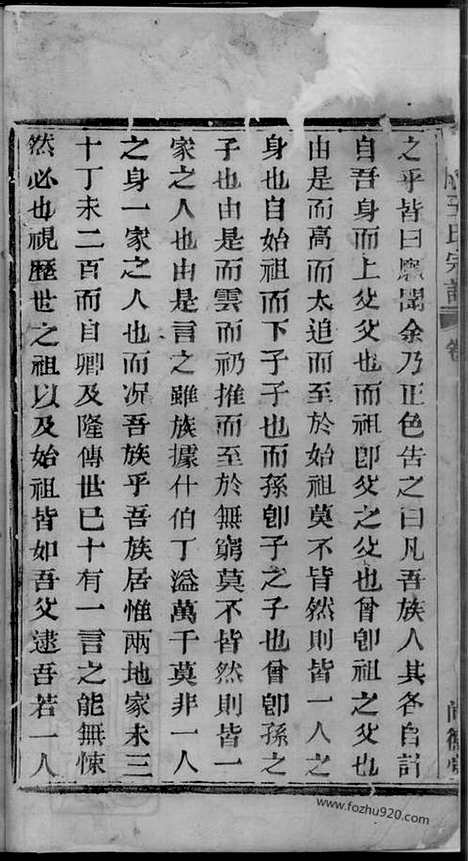 王氏宗譜
卷
尚德堂
之乎皆曰願聞余乃正色告之曰凡吾族人其各自計
自吾身而上父父也而祖卽父之父也曾卽祖之父也
由是而高而太追而至於始祖莫不皆然則皆一人之
身也自始祖而下子子也而孫卽子之子也曾卽孫之
子也由是而雲而礽推而至於無窮莫不皆然則皆一
家之人也由是言之雖族據什伯丁溢萬千莫非一人
之身一家之人也而況吾族乎吾族居惟兩地家未三
十丁未二百而自卿及隆傳世巳十有一言之能無悚
然必也視歷世之祖以及始祖皆如吾父逮吾若一人
www.fozhu920.com